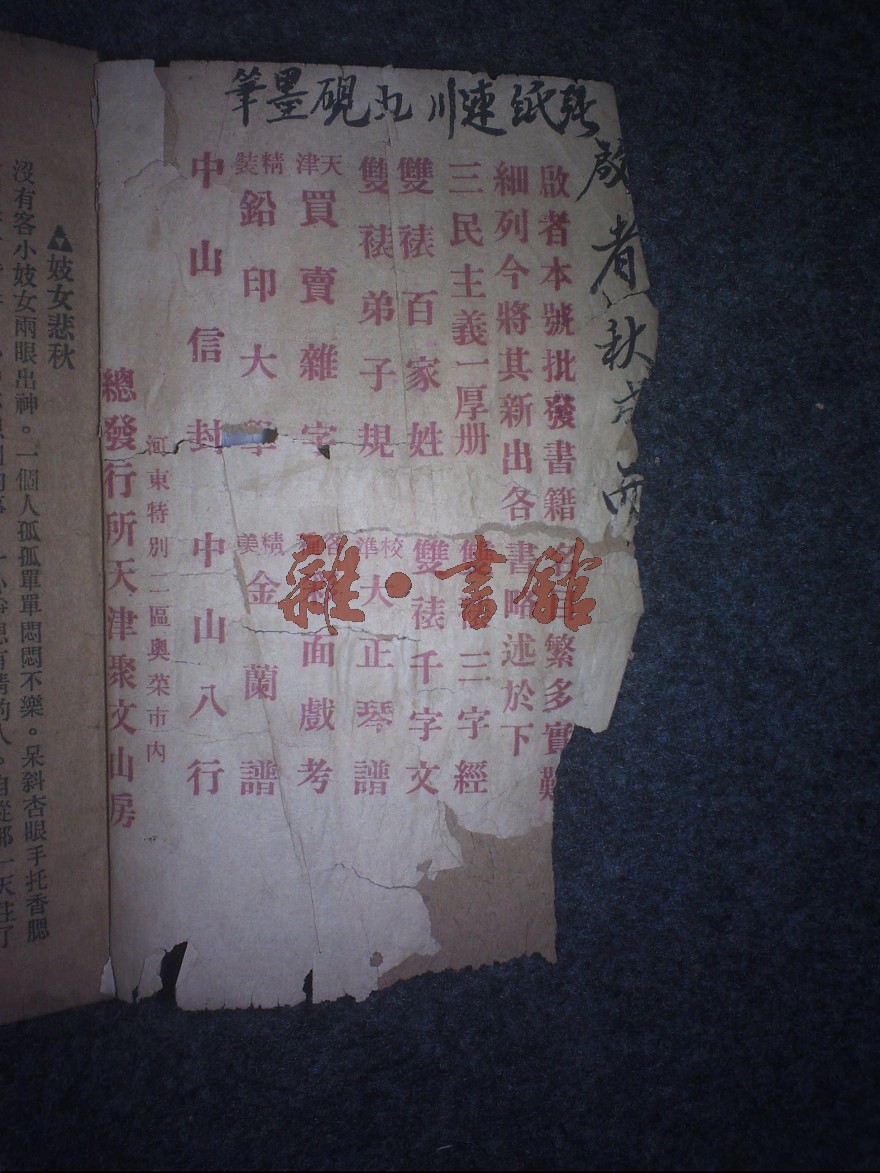 筆墨硯
川連紙張
啟者秋
啟者本號批發書籍名目繁多實難
細列今將其新出各書略述於下
三民主義一厚册
雙裱三字經
雙裱百家姓
雙裱千字文
雙裱弟子規
校準大正琴譜
天津買賣雜字
面戲考
精裝鉛印大學
精美金蘭譜
中山信封
中山八行
河東特別二區奧菜市內
總發行所天津聚文山房
▲妓女悲秋
沒有客小妓女兩眼出神。一個人孤孤單單悶悶不樂。呆斜杏眼手托香腮
雜·書館